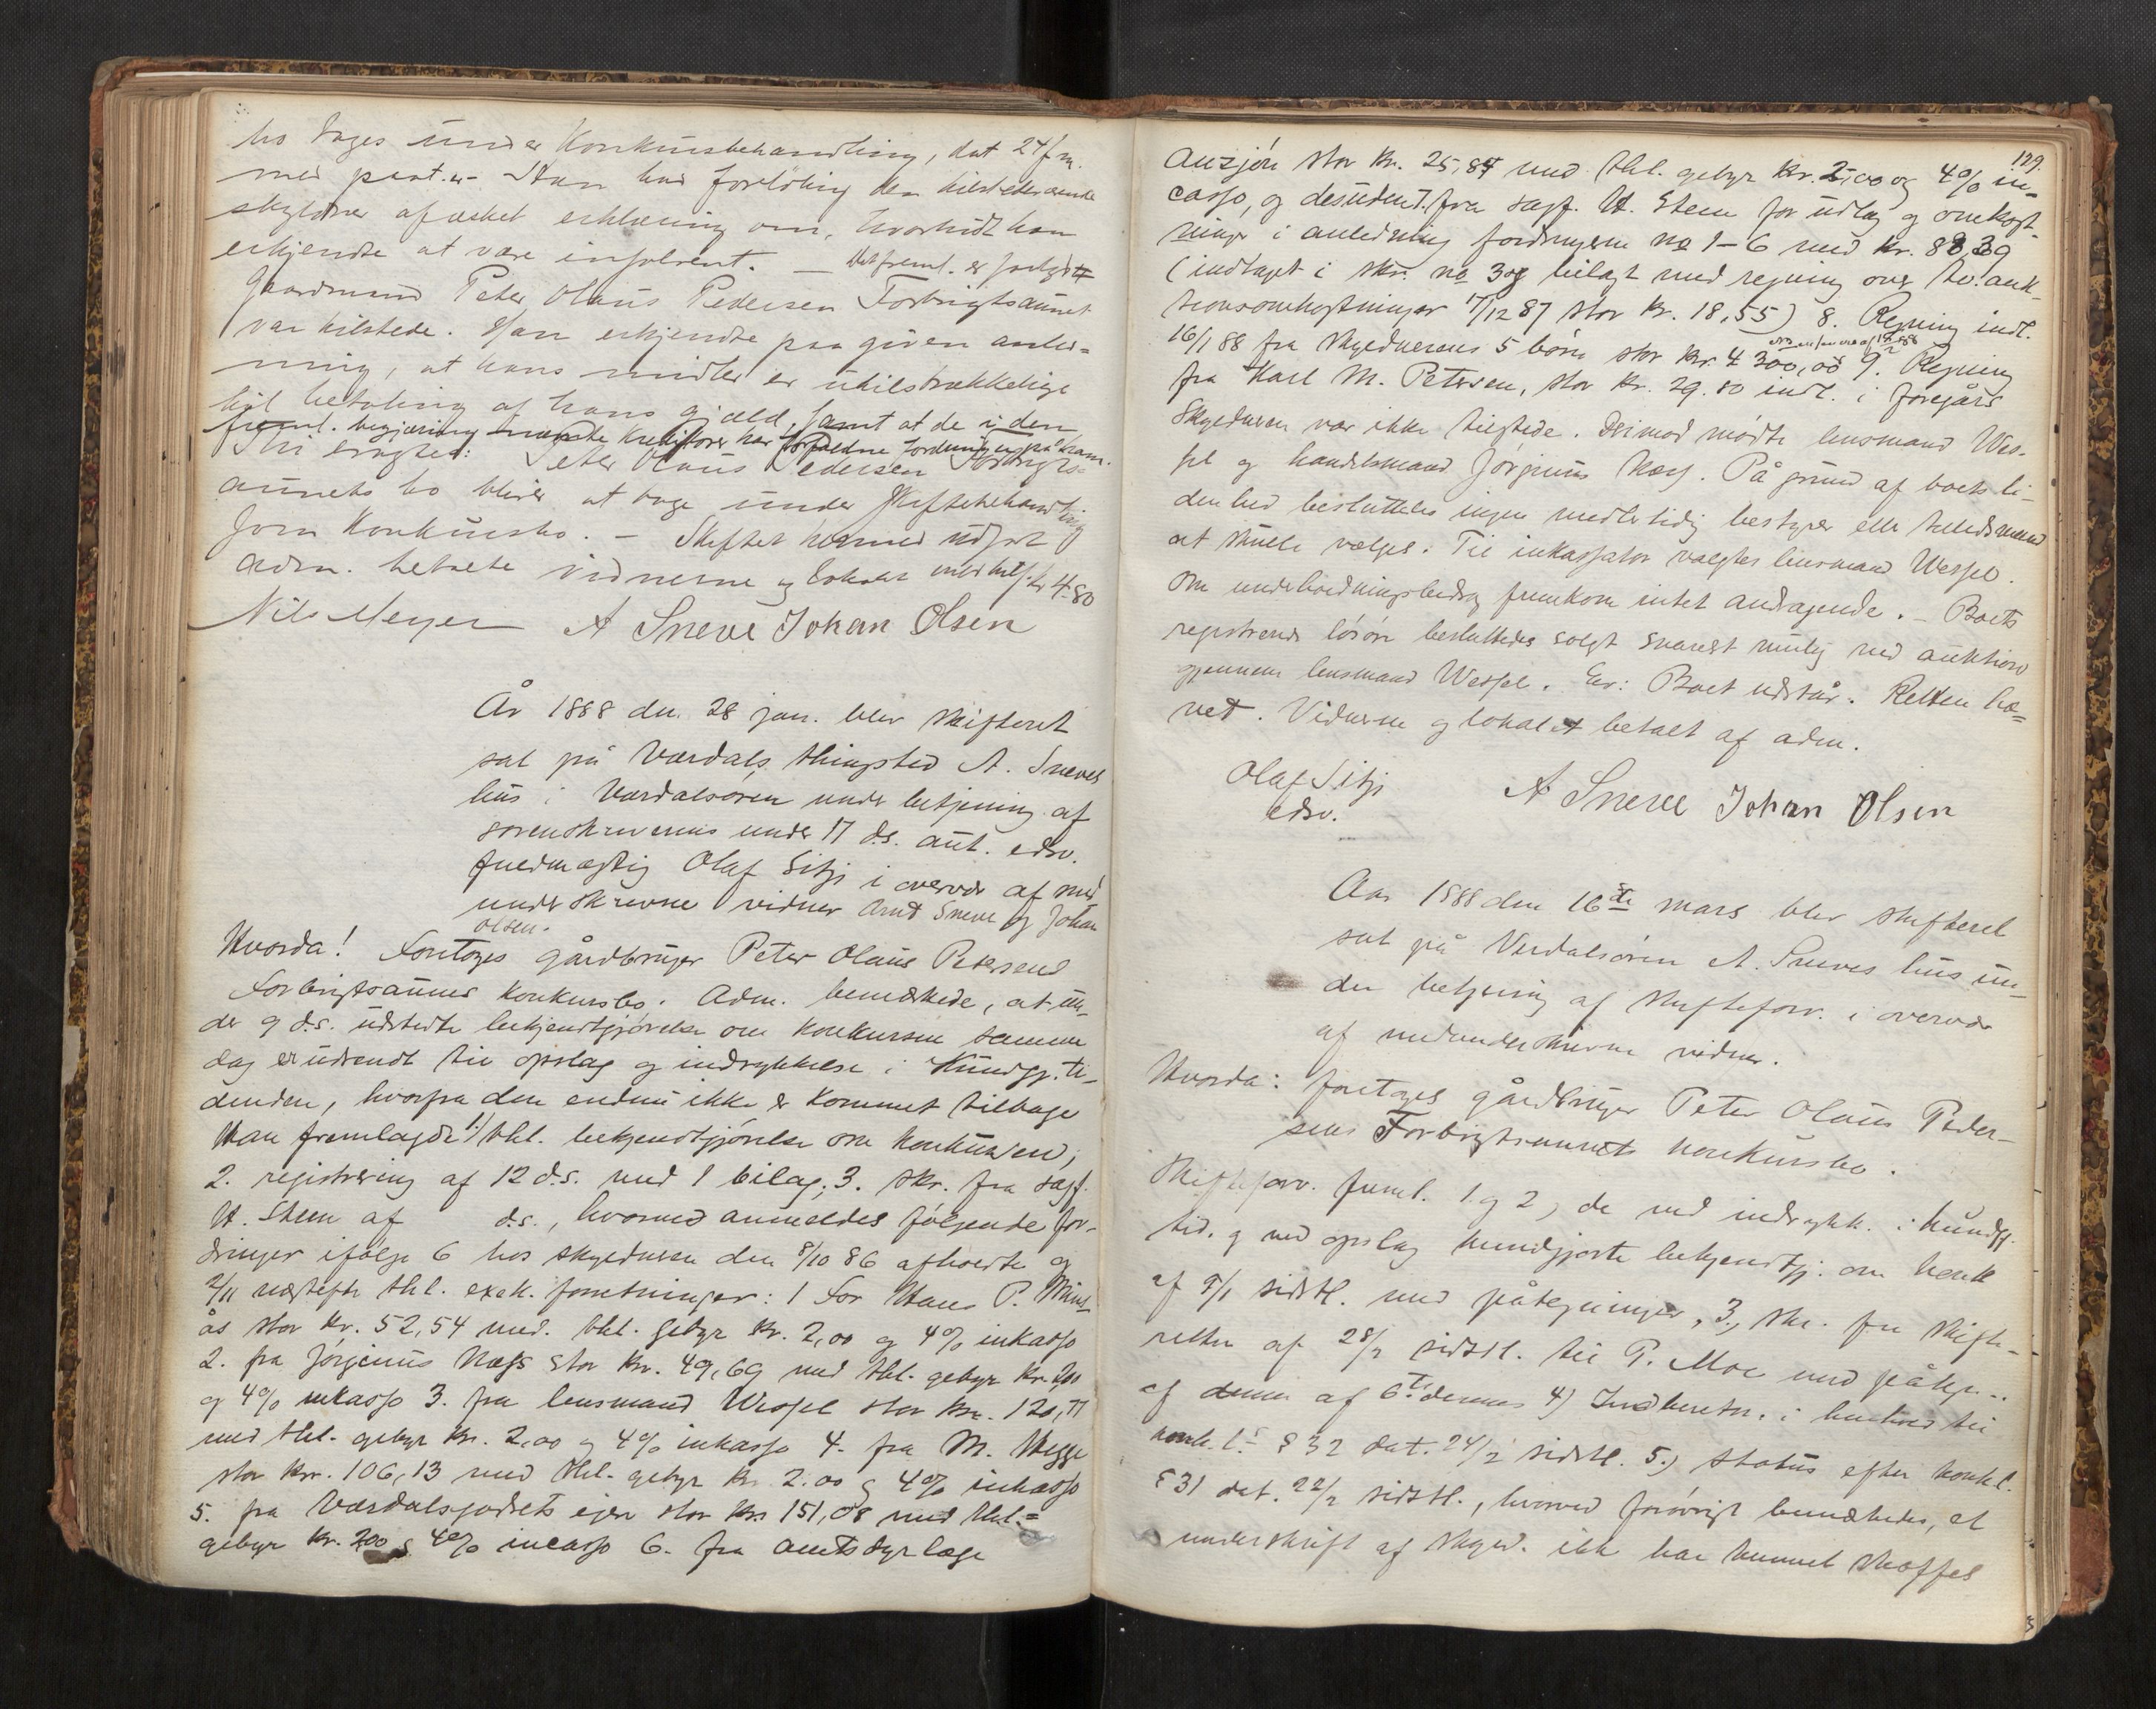 bo tages under Konkursbehandling, dat 24 f.m.
med paat. Han har forløbig den tilstedeværende
skyldner afæsket erklæring om, hvorvidt han
erkjendte at være insolvent. — Det freml. er forlydt
Gaardmand Peter Olaus Pedersen Forbrigtsaunet
var tilstede. Han erkjendte paa given anled=
ning, at hans midler er utilstrækkelige
til betaling af hans gjæld, samt at de i den
freml. begjæring nævnte Kreditorer har forfaldne fordringer på ham.
Thi eragtes: Peter Olaus Pedersen Forbrigts-
aunets bo bliver at tage under Skiftebehandling
som Konkursbo. — Skiftet hermed udsat
Adm. betalte vidnerne og lokalet med tils. kr 4.80
Nils Meyer A Sneve Johan Olsen
År 1888 den 28 jan. blev skifteret
sat på Værdals thingsted A. Sneves
hus i Værdalsøren under betjening af
sorenskriverens under 17 d.s. aut. edsv.
fuldmægtig Olaf Sitje i overvær af med
underskrevne vidner Arnt Sneve og Johan
Olsen.
Hvorda! Foretoges gårdbruger Peter Olaus Pedersens
Forbrigtsaunets konkursbo. Adm. bemærkede, at un-
der 9 d.s. udstedte bekjendtgjørelse om konkursen samme
dag er udsendt til opslag og indrykkelse i Kundgj. ti-
denden, hvorfra den endnu ikke er kommet tilbage
Han fremlagde 1) thl. bekjendtgjørelse om konkursen,
2. registrering af 12 d.s. med 1 bilag, 3. skr. fra sagf.
H. Steen af d.s., hvormed anmeldes følgende for-
dringer ifølge 6 hos skyldneren den 8/10 86 afholdte og
2/11 næstefter thl. exek. forretninger: 1 For Hans P. Mins-
ås stor kr. 52,54 med. thl. gebyr kr. 2,00 og 4% inkasso
2. fra Jørginus Næss stor kr. 49,69 med thl. gebyr kr. 2,00
og 4% inkasso 3. fra lensmand Wessel stor kr. 120,77
med thl. gebyr kr. 2,00 og 4% inkasso 4. fra M. Hegge
stor kr. 106,13 med thl. gebyr kr. 2.00 og 4% inkasso
5. fra Værdalsgodsets ejer stor kr. 151,08 med thl.=
gebyr kr. 2,00 og 4% incasso 6. fra amtsdyrlæge
129.
Auzjón stor kr. 25,84 med thl. gebyr kr. 2,00 og 4% in-
casso, og desuden 7. fra sagf. H. Steen for udlæg og omkost-
ninger i anledning fordringerne no 1-6 med kr. 88,39
(indtaget i skr. no 3 og bilagt med regning over tv. auk-
tionsomkostninger 17/12 87 stor kr. 18,55) 8. Regning indl.
16/1 88 fra skyldnerens 5 børn stor kr. 4300,00 9. Regning
fra Karl M. Petersen, stor kr. 29.80 indl. i foregårs
Skyldneren var ikke tilstede. Derimod mødte lensmand Wes-
sel og handelsmand Jørginus Næss. På grund af boets li-
denhed besluttedes ingen midlertidig bestyrer eller tilsedsmand
at skulle vælges. Til inkassator valgtes lensmand Wessel.
Om underholdningsbidrag fremkom intet andragende. — Boets
registrerede løsøre besluttedes solgt snarest mulig ved auktion
gjennem lensmand Wessel. Er: Boet udstår. Retten hæ=
vet. Vidnerne og lokalet betalt af adm.
Olaf Sitje A Sneve Johan Olsen
edsv.
Aar 1888 den 16de mars blev skifteret
sat på Verdalsøren A. Sneves hus un-
der betjening af skifteforv. i overvær
af medunderskrevne vidner.
Hvorda: foretoges gårdbruger Peter Olaus Peder-
sens Forbrigtsaunets konkursbo.
Skifteforv. freml. 1 og 2, de ved indrykk. i kundgj.
tid. og ved opslag kundgjorte bekjendtgj. om konk
af 9/1 sidstl. med påtegninger, 3, skr. fra skifte-
retten af 28/2 sidstl. til P. Moe med påtegn..
af denne af 6te dennes 4) Indberetn. i henhold til
konk.l.s § 32 dat. 24/2 sidstl. 5.) Status efter konk.l.
§ 31 dat. 22/2 sidstl., hvorved forøvrigt bemærkedes, at
underskrift af skyld. ikke har kunnet skaffes